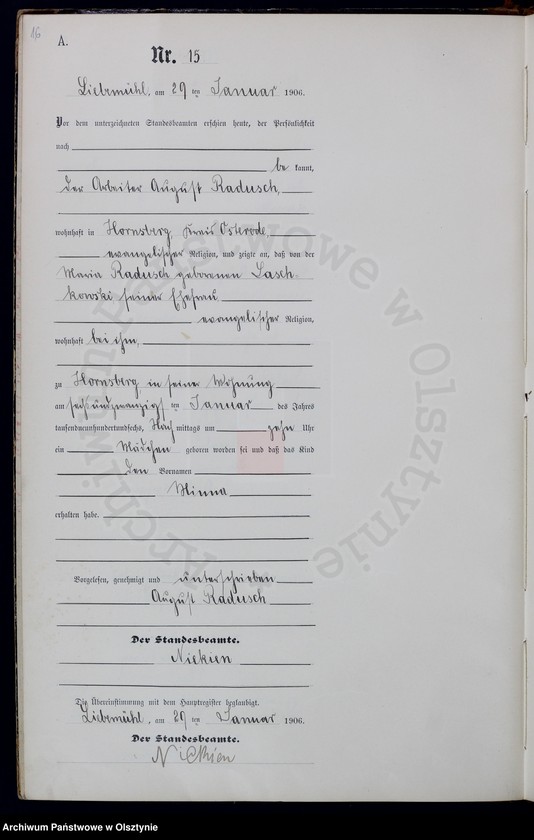 16
A.
Nr. 15
Liebemühl, am 29 ten Januar 1906.
Vor dem unterzeichneten Standesbeamten erschien heute, der Persönlichkeit
nach
be kannt,
der Arbeiter August Radusch,
wohnhaft in Hornsberg, Kreis Osterode,
evangelischer Religion, und zeigte an, daß von der
Maria Radusch geborenen Lasch-
kowski seiner Ehefrau
evangelischer Religion,
wohnhaft bei ihm,
zu Hornsberg in seiner Wohnung
am sechsundzwanzigsten Januar des Jahres
tausendneunhundertundsechs, Nach mittags um zehn Uhr
ein Mädchen geboren worden sei und daß das Kind
den Vornamen
Minna
erhalten habe.
Vorgelesen, genehmigt und unterschrieben
August Radusch
Der Standesbeamte.
Nickien
Die Übereinstimmung mit dem Hauptregister beglaubigt.
Liebemühl, am 29 ten Januar 1906.
Der Standesbeamte.
Nickien
Archiwum Państwowe w Olsztynie
Archiwum Państwowe w Olsztynie